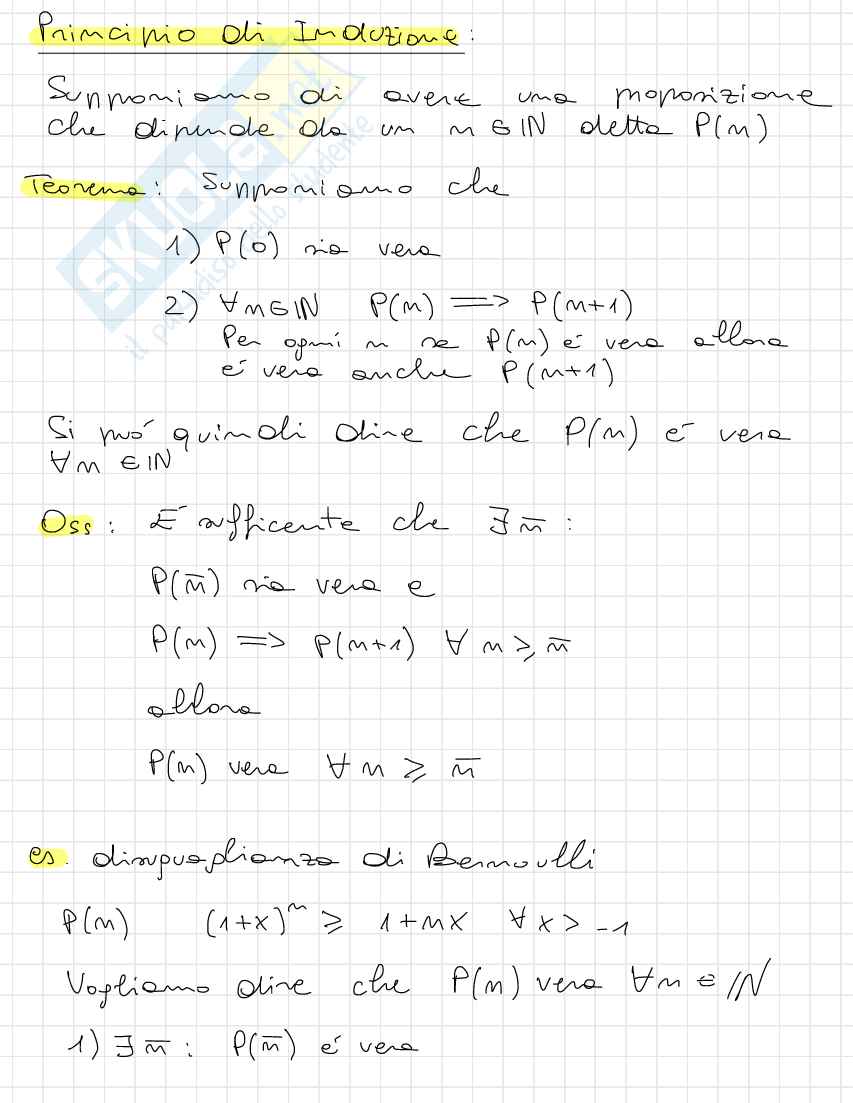 Principio di Induzione:
Supponiamo di avere una proposizione
che dipende da un n ∈ ℕ detta P(n)
Teorema: Supponiamo che
1) P(0) sia vera
2) ∀n∈ℕ P(n) => P(n+1)
Per ogni n se P(n) é vera allora
é vera anche P(n+1)
Si puó quindi dire che P(n) é vera
∀n ∈ ℕ
Oss: É sufficente che ∃ n̅ :
P(n̅) sia vera e
P(n) => P(n+1) ∀ n ≥ n̅
allora
P(n) vera ∀ n ≥ n̅
es. disuguaglianza di Bernoulli
P(n) (1+x)ⁿ ≥ 1+nx ∀ x > -1
Vogliamo dire che P(n) vera ∀n ∈ ℕ
1) ∃ n̅ : P(n̅) é vera
SKUOLA.net
il paradiso dello studente